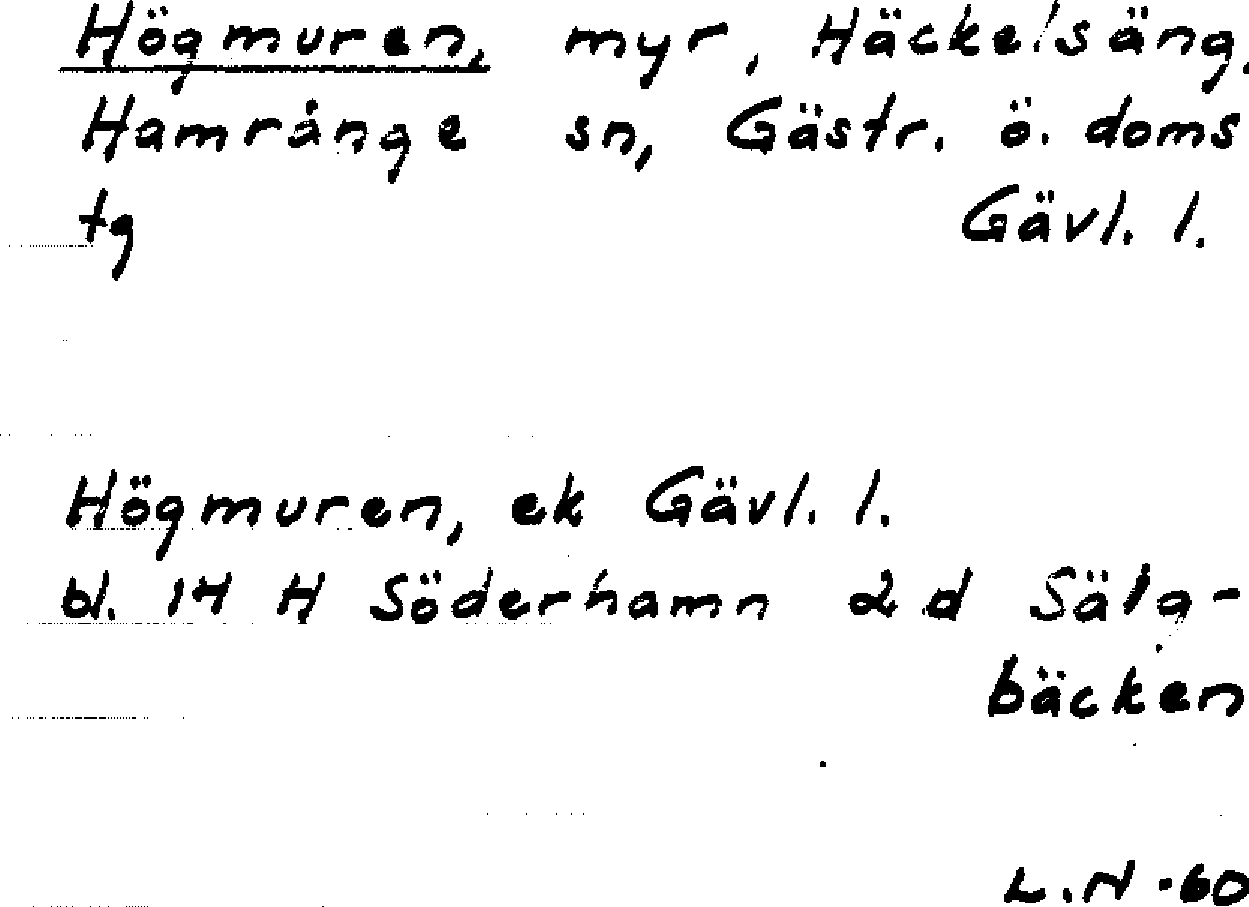 Högmuren, myr, Häckelsäng,
Hamrånge sn, Gästr. ö. doms
tg Gävl. l.
Högmuren, ek Gävl. l.
bl. 14 H Söderhamn 2 d Sälg-
bäcken
L.N -60